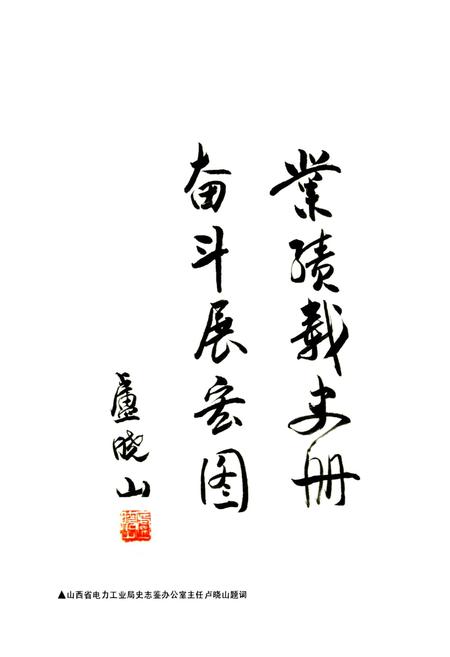 業绩载史册
奋斗展宏图
盧晓山
▲山西省电力工业局史志鉴办公室主任卢晓山题词